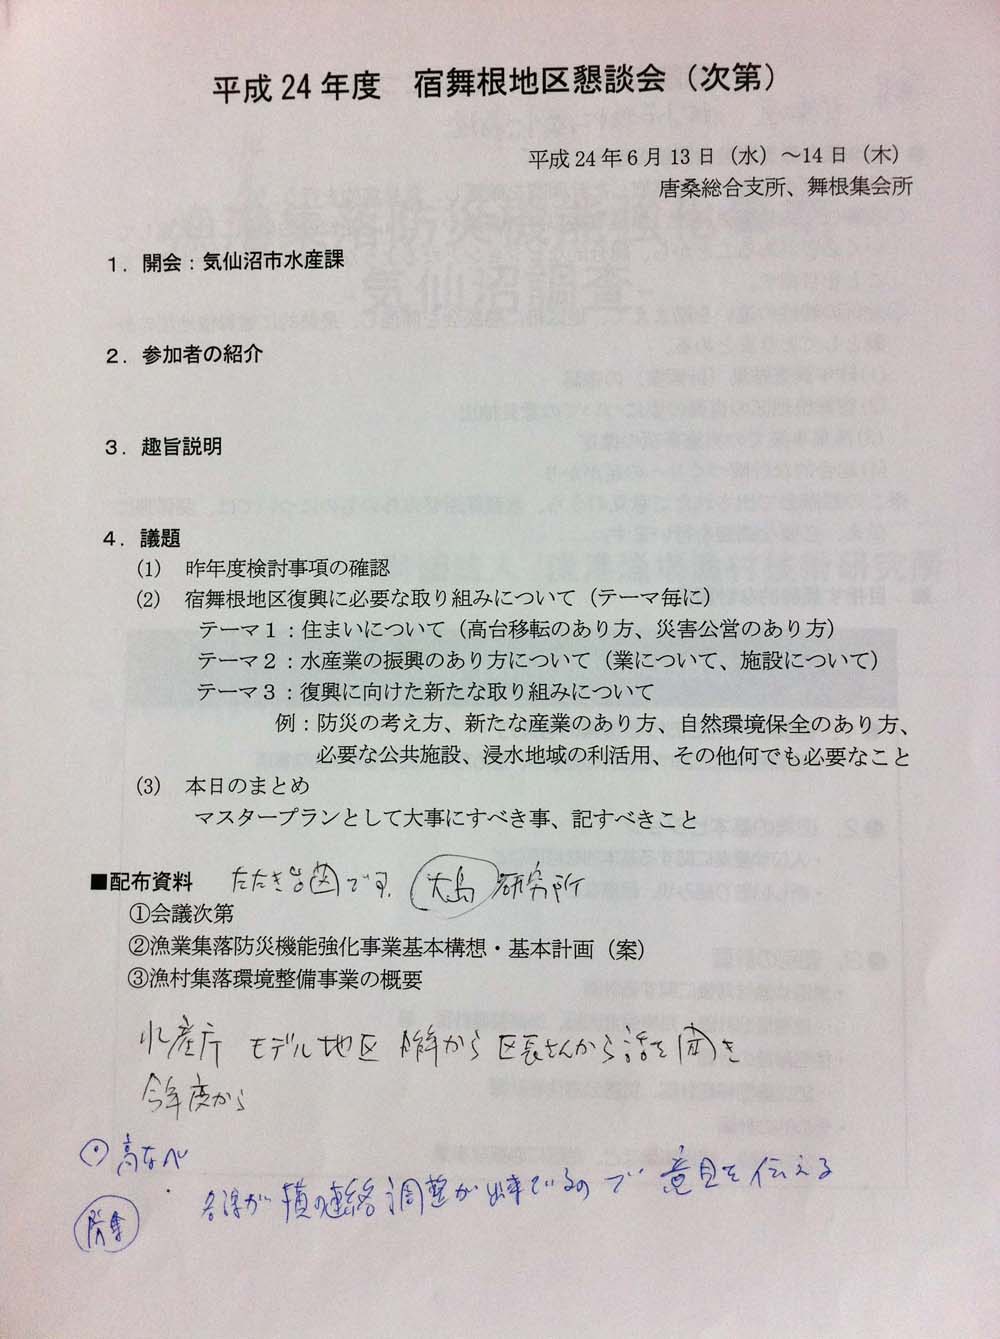 平成24年度　宿舞根地区懇談会（次第）
平成24年6月13日（水）～14日（木）
唐桑総合支所、舞根集会所
1．開会：気仙沼市水産課
2．参加者の紹介
3．趣旨説明
4．議題
(1)　昨年度検討事項の確認
(2)　宿舞根地区復興に必要な取り組みについて（テーマ毎に）
テーマ1：住まいについて（高台移転のあり方、災害公営のあり方）
テーマ2：水産業の振興のあり方について（業について、施設について）
テーマ3：復興に向けた新たな取り組みについて
例：防災の考え方、新たな産業のあり方、自然環境保全のあり方、
必要な公共施設、浸水地域の利活用、その他何でも必要なこと
(3)　本日のまとめ
マスタープランとして大事にすべき事、記すべきこと
■配布資料　たたき台図です　大島 研究所
①会議次第
②漁業集落防災機能強化事業基本構想・基本計画（案）
③漁村集落環境整備事業の概要
水産庁 モデル地区 昨年から 区長さんから話を聞き
今年度から
横の連絡調整が出来ているので 意見を伝える